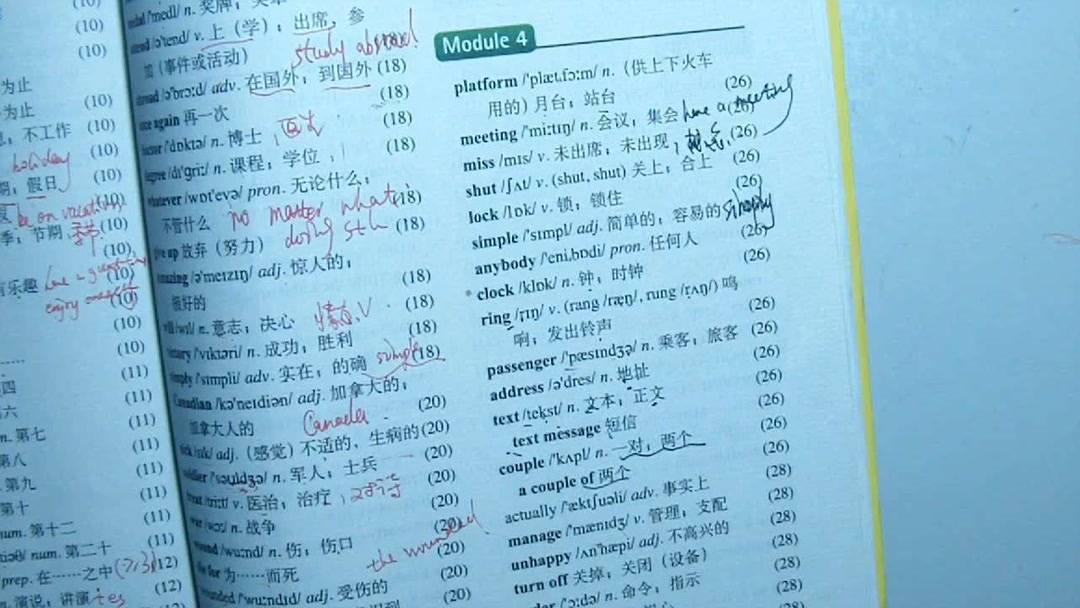 为止
(10)
(10)
为止
(10)
息，不工作 (10)
holiday (10)
假日 (10)
季；节期 (10)
(10)
有乐趣 (10)
(10)
(10)
(10)
(11)
四 (11)
六 (11)
n. 第七 (11)
第八 (11)
第九 (11)
第十 (11)
num. 第十二 (11)
num. 第二十 (11)
prep. 在……之中 (12)
演说；讲演 (12)
/ə'tend/ v. 上（学）；出席，参
加（事件或活动） (18)
study abroad
/ə'brɔːd/ adv. 在国外；到国外 (18)
again 再一次 (18)
/'dɒktə/ n. 博士 (18)
/dɪ'ɡriː/ n. 课程；学位 (18)
whatever /wɒt'evə/ pron. 无论什么；
不管什么 (18)
no matter what
up 放弃（努力） (18)
doing sth
/ə'meɪzɪŋ/ adj. 惊人的；
极好的 (18)
/wɪl/ n. 意志；决心 (18)
/'vɪktəri/ n. 成功；胜利 (18)
simply /'sɪmpli/ adv. 实在；的确 (18)
simple
Canadian /kə'neɪdiən/ adj. 加拿大的；
加拿大人的 (20)
Canada
/sɪk/ adj. （感觉）不适的，生病的 (20)
/'səʊldʒə/ n. 军人；士兵 (20)
/triːt/ v. 医治；治疗 (20)
/wɔː/ n. 战争 (20)
/wuːnd/ n. 伤；伤口 (20)
the wounded
for 为……而死 (20)
/'wuːndɪd/ adj. 受伤的 (20)
Module 4
platform /'plætfɔːm/ n. （供上下火车
用的）月台；站台 (26)
meeting /'miːtɪŋ/ n. 会议；集会 (26)
have a meeting
miss /mɪs/ v. 未出席；未出现 (26)
shut /ʃʌt/ v. (shut, shut) 关上；合上 (26)
lock /lɒk/ v. 锁；锁住 (26)
simple /'sɪmpl/ adj. 简单的；容易的 (26)
simply
anybody /'eni,bɒdi/ pron. 任何人 (26)
clock /klɒk/ n. 钟；时钟 (26)
ring /rɪŋ/ v. (rang /ræŋ/, rung /rʌŋ/) 鸣
响；发出铃声 (26)
passenger /'pæsɪndʒə/ n. 乘客；旅客 (26)
address /ə'dres/ n. 地址 (26)
text /tekst/ n. 文本；正文 (26)
text message 短信 (26)
couple /'kʌpl/ n. 一对；两个 (26)
a couple of 两个 (28)
actually /'æktʃuəli/ adv. 事实上 (28)
manage /'mænɪdʒ/ v. 管理；支配 (28)
unhappy /ʌn'hæpi/ adj. 不高兴的 (28)
turn off 关掉；关闭（设备） (28)
/'ɔːdə/ n. 命令；指示 (28)